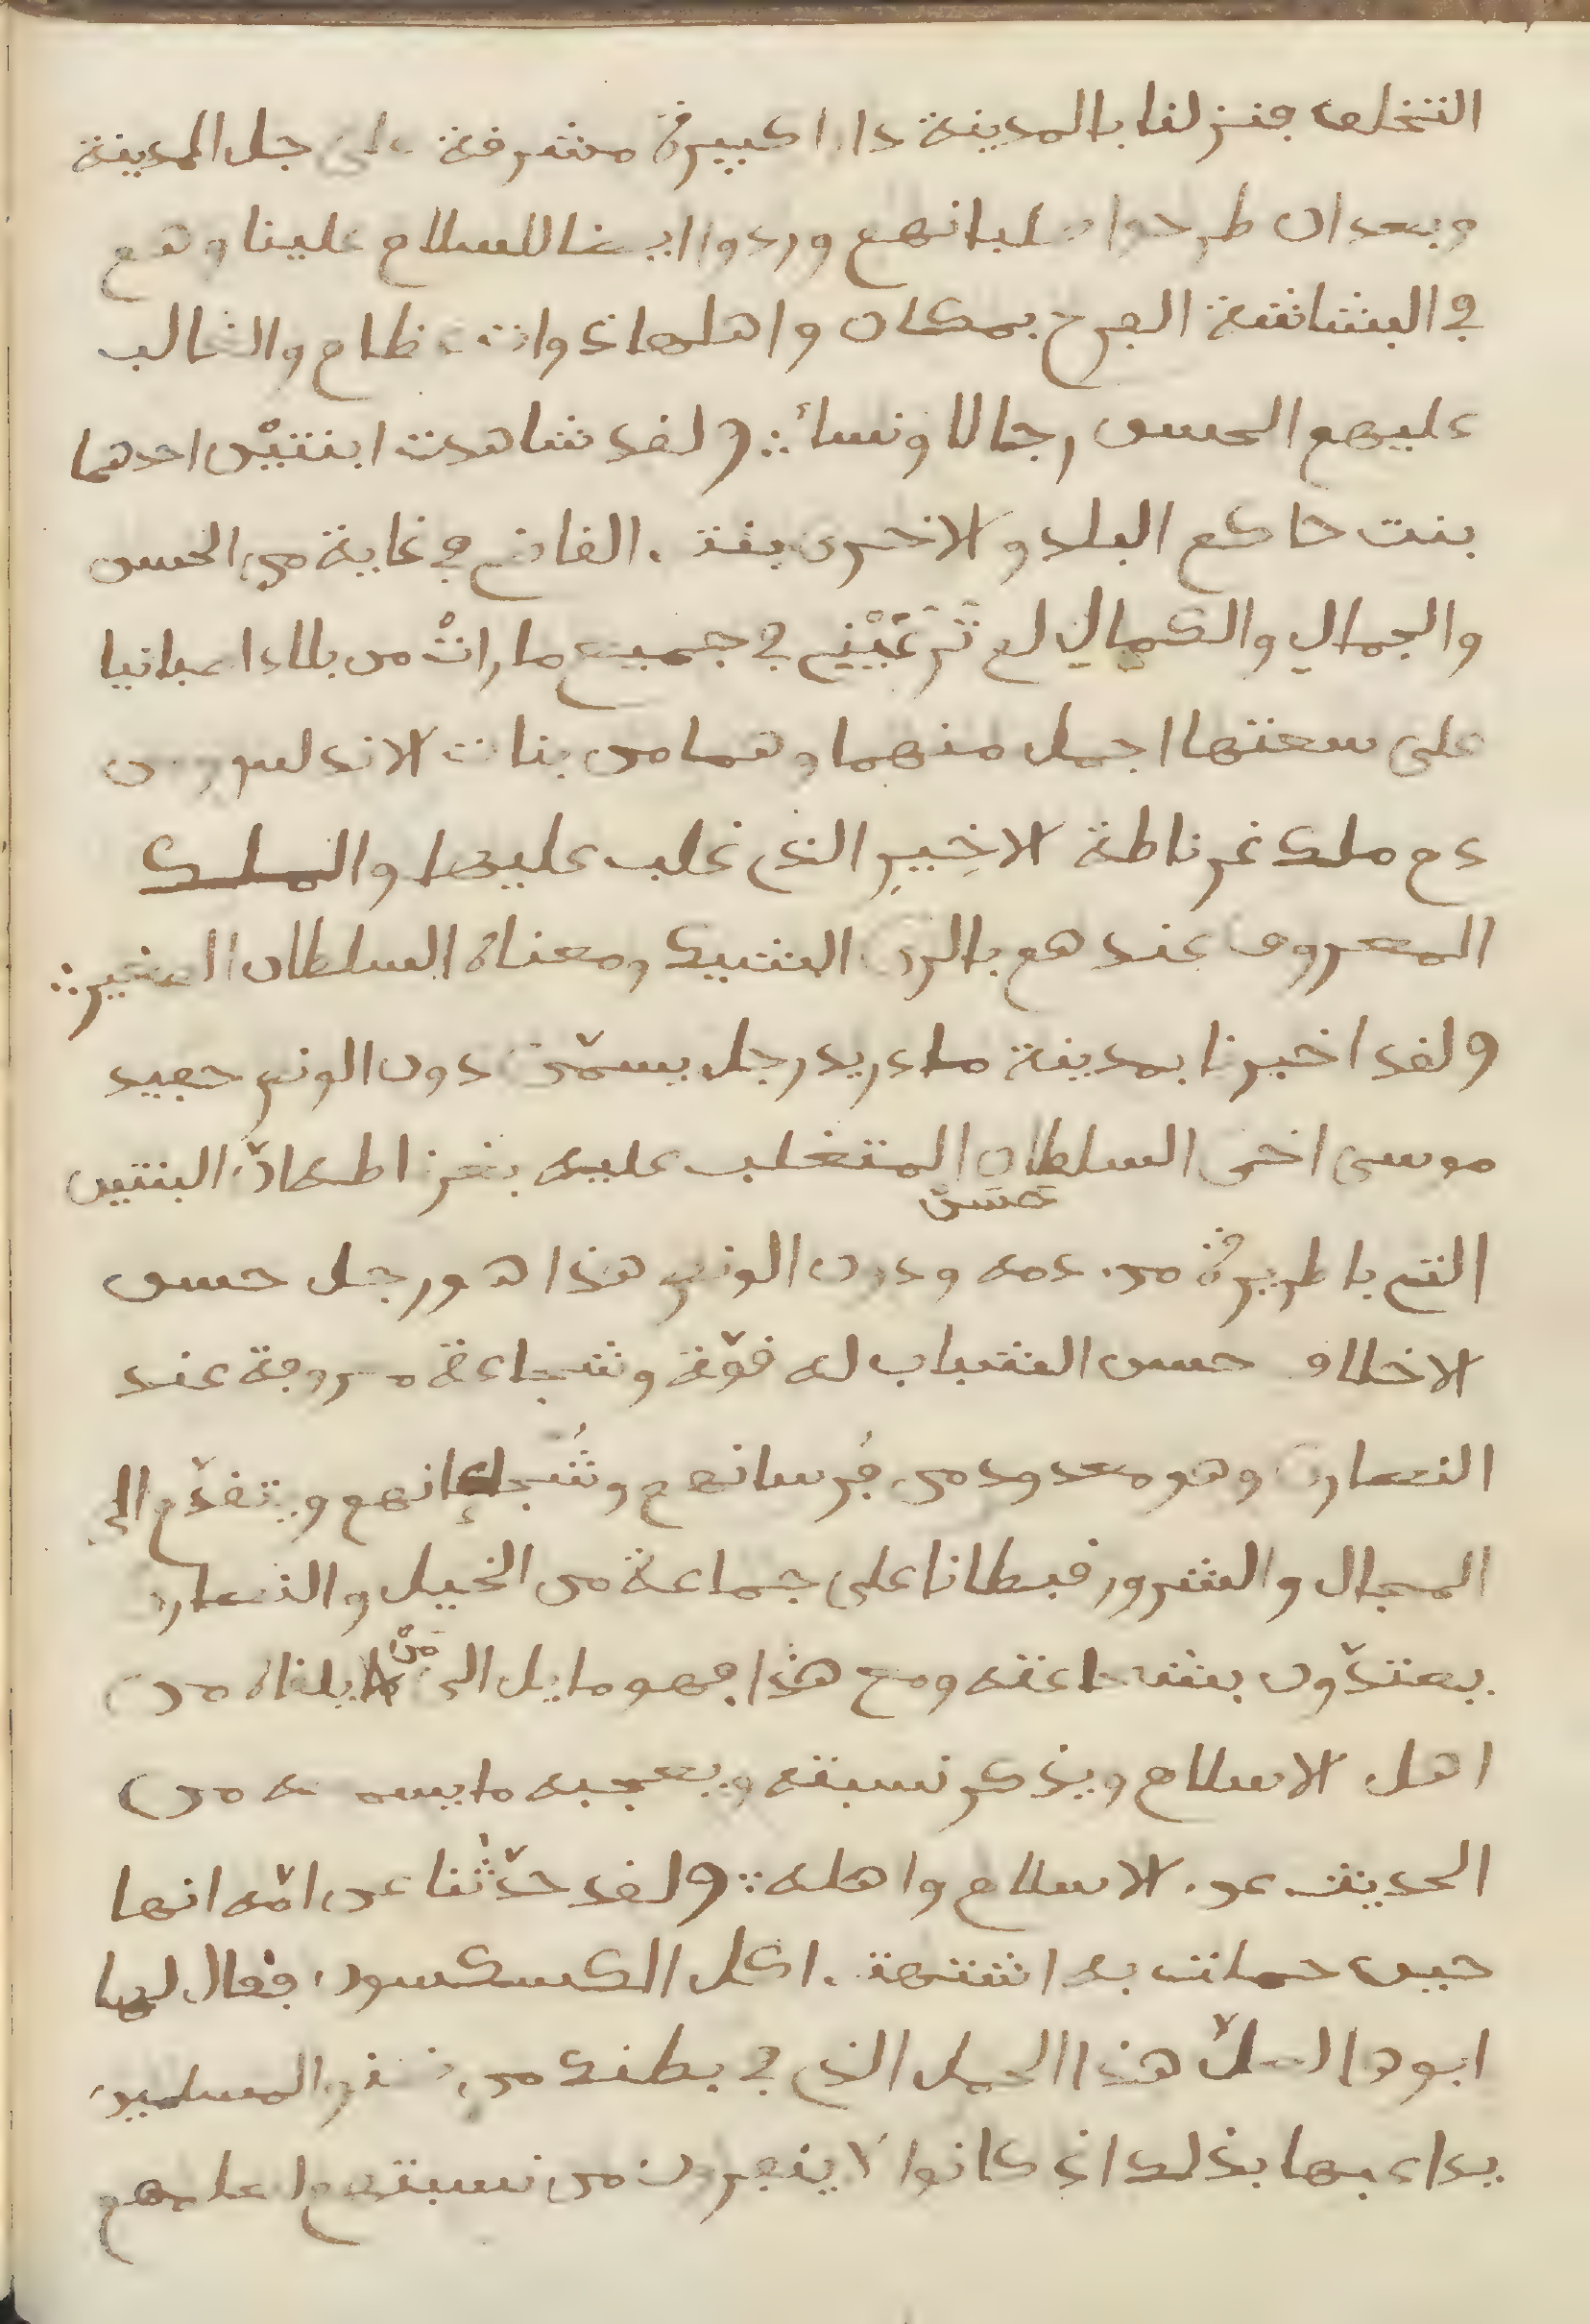 التخلف فنزلنا بالمدينة دارا كبيرة مشرفة على جل المدينة
وبعد ان طرحوا صلبانهم وردوا ايضا للسلام علينا وهم
في البشاشة الفرح بمكان واهلها ذوات نظام والغالب
عليهم الحسن رجالا ونساءً ∴ ولقد شاهدت ابنتيْن احدهما
بنت حاكم البلد والاخرى بنت القاضي في غاية من الحسن
والجمال والكمال لم تَرَ عَيْنِي في جميع ما راتْ من بلاد اصبانيا
على سعتها اجمل منهما وهما من بنات الاندلس ومن
دم ملك غرناطة الاخِيرِ الذي غلب عليها والملك
المعروف عندهم بالري الشيك ومعناه السلطان الصغير ∴
ولقد اخبرنا بمدينة مادريد رجل يسمّى دون الونص حفيد
موسى اخي السلطان المتغلب عليه بغرناطة انّ البنتين
التي باطريرة من دمه ودون الونص هذا هو رجل حسن حَسَنُ
الاخلاق حسن الشباب له قوّة وشجاعة معروفة عند
النصارى وهو معدود من فُرسانهم وشُجعانهم ويتقدّم الى
المجال والشرور قبطانا على جماعة من الخيل والنصارى
يعتدّون بشجاعته ومع هذا فهو مايل الى مَنْ يلقاه من
اهل الاسلام ويذكر نسبته ويعجبه ما يسمعه من
الحديث عن الاسلام واهله ∴ ولقد حدّثنا عن امّه انها
حين حملت به اشتهت اكل الكسكسون فقال لها
ابوه العلّ هذا الحمل الذي في بطنك من نسل المسلمين
يداعبها بذلك اذ كانوا لا ينفرون من نسبتهم اعلمهم